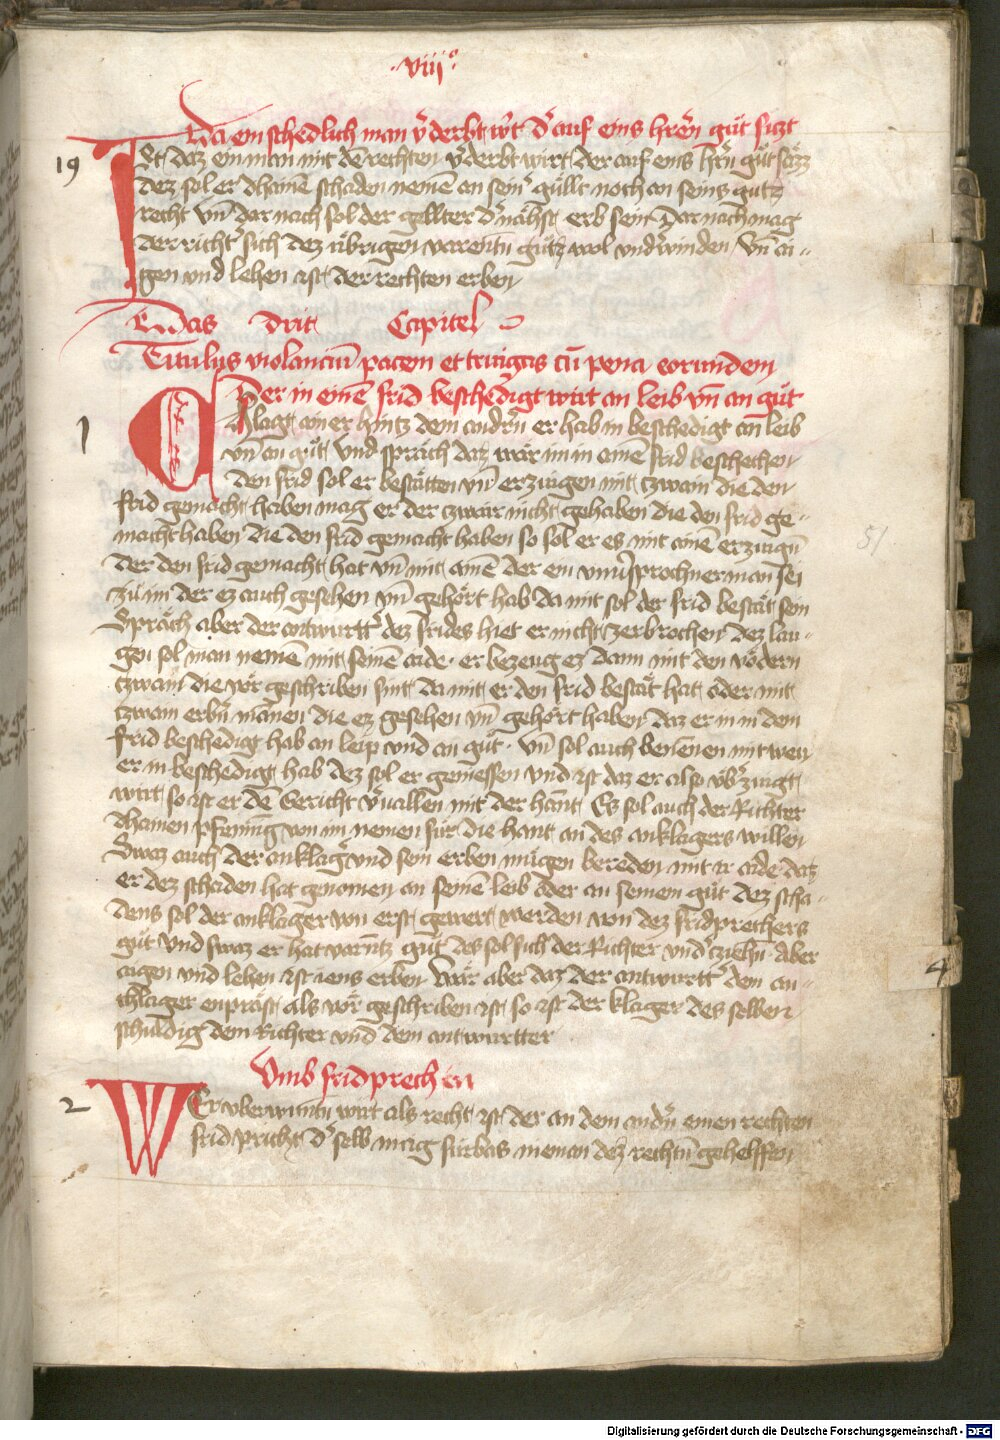 ·viij°·
Da ein schedlich man v̓derbt wirt d̓ auf eins hrẽn gůt siczt
19
Ist daz ein man mit dẽ rechten v̓derbt wirt der auf eins hrñ gůt säzz
dez sol er dhainẽ schaden nemẽ an sein̓ güllt noch an seins gutz
recht vnd̄ dar nach sol der gellter d̓ nähst erb sein Dar nach mag
der richt̓ sich dez übrigen varentn̄ gůtz wol vnderwinden Vnd̄ ai-
gen vnd lehen ist der rechten erben
Das drit Capitel
Titulus violanciū pacem et treugas cū pena eorundem
Wer in einē frid beschedigt wirt an leib vnd̄ an gůt
1
Chlagt ain er hintz dem andrñ er hab in beschedigt an leib
vnd̄ an gůt Vnd spräch daz wär im in ainē frid beschechen
den frid sol er bestätten vnd̄ erzeugen mit czwain die den
frid gemacht haben mag er der czwair nicht gehaben die den frid ge-
macht haben die den frid gemacht haben so sol er es mit ainē erzeugn̄
der den frid gemacht hat vnd̄ mit ainē der ein vnuersprochner man sei
zů im der ez auch gesehen vnd̄ gehört hab da mit sol der frid bestät sein
Spräch aber der antwurtt̓ dez frides hiet er nicht zerbrochen dez lau-
gen sol man nemē mit seinē aide· er bezeug ez dann mit den vödern
czwain die vor geschriben sint da mit er den frid bestät hat oder mit
czwain erbñ mānen die ez gesehen vnd̄ gehört haben daz er in in dem
frid beschedigt hab an leip vnd an gůt· Vnd̄ sol auch benennen mit weu
er in beschedigt hab dez sol er geniessen vnd ist daz er also vb̓zeugt
wirt so ist er dē Gericht v̓uallen mit der hant Es sol auch der Richter
dhainen pfening von im nemen für die hant an des anklagers willen
Swaz auch der anklag̓ vnd sein erben mügen bereden mit ir aide daz
er dez schaden hat genomen an seinē leib oder an seinem gůt dez scha-
dens sol der anklager von erst gewert werden von dez fridprechers
gůt Vnd swaz er hat varntz gůt des sol sich der Richter vnd̓czichn̄ Aber
aigen vnd lehen ist iens erben Wär aber daz der antwurtt̓ dem an-
chlager enpräst als vor geschriben ist so ist der klager des selben
schuldig dem Richter vnd dem antwurtter
Vmb fridprechen
2
Wer vberwunten wirt als recht ist der an dem andñ einen rechten
frid pricht d̓ selb mag fürbas nieman dez rechtn̄ gehelffen
51
4
Digitalisierung gefördert durch die Deutsche Forschungsgemeinschaft - DFG